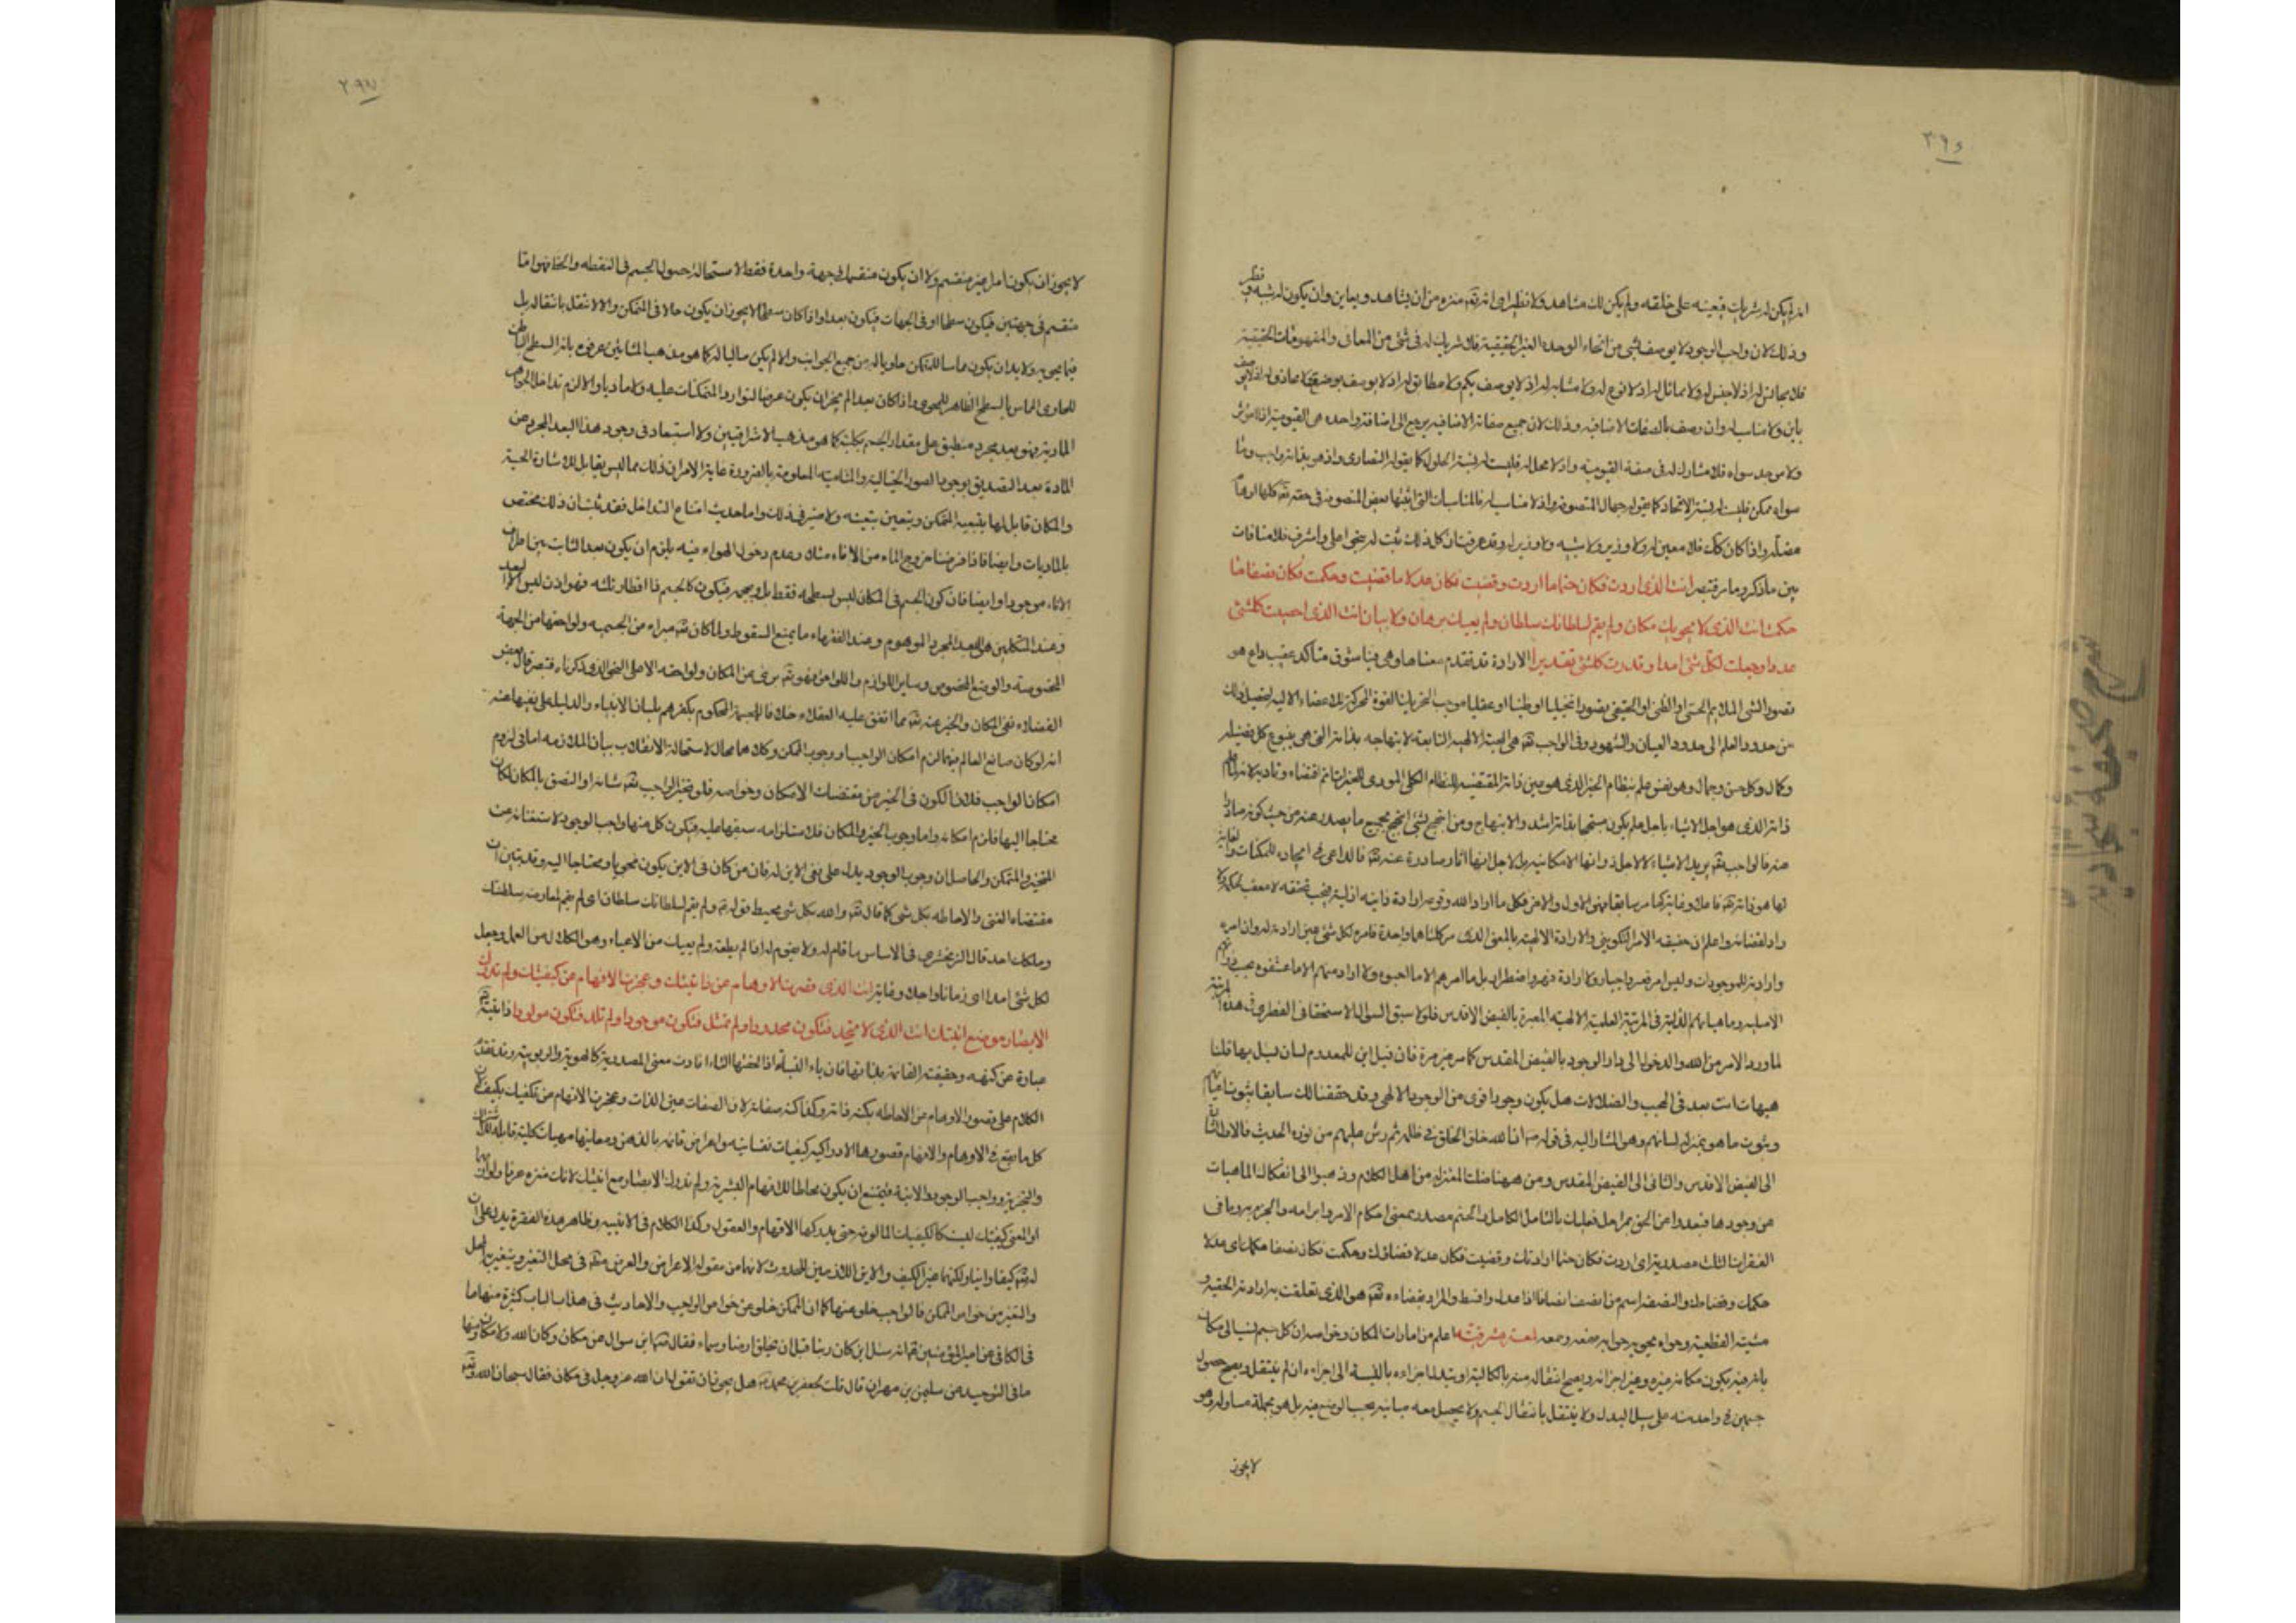 ٣٩٤
انه لم يكن له شريك فيعينه على خلقه ولم يكن لك مشاهد ولا نظير اى انه تعه منزه من ان يشاهد و يعاين وان يكون له شبه و نظير
وذلك لان واجب الوجود لا يوصف بشئ من انحاء الوحدة الغير الحقيقية فلا شريك له فى شئ من المعانى والمفهومات الحقيقية
فلا مجانس له اذ لا جنس له ولا مماثل له اذ لا نوع له ولا مشابه له اذ لا يوصف بكيف ولا مطابق له اذ لا يوصف بوضع ولا محاذى له اذ لا يوصف
باين ولا مناسب له وان وصف بالصفات الاضافيه وذلك لان جميع صفاته الاضافيه يرجع الى اضافة واحده هى القيومية اذ لا مؤثر
ولا موجد سواه فلا مشارك له فى صفة القيومية واذ لا محل له فليست له نسبة الحلول كما يقوله النصارى واذ هو بذاته واجب وما
سواه ممكن فليست له نسبة الاتحاد كما يقوله جهال المتصوفه واذ لا مناسب له فالمناسبات التى اثبتها بعض المتصوفه فى حقه تعه كلها اوهام
مضلة واذا كان كذلك فلا معين له ولا وزير ولا شبه وقد عرفت ان كل ذلك ثبت له بنحو اعلى واشرف فلا منافات
بين ما ذكر وما مر فتبصر انت الذى اردت فكان حتما ما اردت وقضيت فكان عدلا ما قضيت وحكمت فكان نصفا ما
حكمت انت الذى لا يحويك مكان ولم يقم لسلطانك سلطان ولم يعيك برهان ولا بيان انت الذى احصيت كلشئ
عددا وجعلت لكل شئ امدا وقدرت كلشئ تقديرا الارادة قد تقدم معناها وهى فينا شوق متأكد عقيب داع هو
تصور الشئ الملايم الحسى او الظنى او الحقيقى تصورا تخيليا او ظنيا او عقليا موجب لتحريك القوة المحركة للاعضاء الالية لتحصيل ذلك
من حدود العلم الى حدود العيان والشهود وفى الواجب تعه هى المحبة الالهية التابعة لابتهاجه بذاته التى هى ينبوع كل فضيلة
وكمال وكل حسن وجمال وهو نفس علم بنظام الخير الذى هو عين ذاته المقتضيه للنظام الكلى
ذاته الذى هو اجل الاشياء باجل علم يكون مبتهجا بذاته اشد الابتهاج ومن ابتهج بشئ ابتهج بجميع ما يصدر عنه من حيث كونه صادرا
عنه فالواجب تعه يريد الاشياء لا لاجل ذواتها الامكانية بل لاجل انها اثار صادرة عنه تعه فالداعى فى ايجاده للممكنات والغاية
راد لقضائه واعلم ان حقيقه الامر التكوينى والارادة الالهية بالمعنى الذى مر كلتاهما واحدة فامره لكل شئ عين ارادته له وان امره
وارادته للموجودات وليس امر قسر واجبار ولا ارادة قهر واضطرار بل ما امرهم الا ما احبوه ولا اراد منهم الا ما عشقوه بحسب ذواتهم
الاصلية وماهياتهم الذاتية فى المرتبة العلمية الالهية المعبرة بالفيض الاقدس فلولا سبق السؤال الاستحقاقى الفطرى فى هذه المرتبة
لما ورد الامر من الله والدخول الى دار الوجود بالفيض المقدس كما مر غير مرة فان قيل اين للمعدوم لسان ليسئل بها قلنا
هيهات انت بعد فى الحجب والضلالات هل يكون وجودا اقوى من الوجود الالهى وقد حققنا لك سابقا ثبوت اعيانهم
وثبوت ما هو بمنزلة لسانهم وهو المشار اليه فى قوله ص ان الله خلق الخلق فى ظلمة ثم رش عليهم من نوره الحديث فالاول اشارة
الى الفيض الاقدس والثانى الى الفيض المقدس ومن ههنا ضلت المعتزله من اهل الكلام وذهبوا الى انفكاك الماهيات
عن وجودها فبعدوا عن الحق بمراحل فعليك بالتامل الكامل والحتم مصدر بمعنى احكام الامر وابرامه والجزم به وما فى
الفقرات الثلث مصدرية اى اردت فكان حتما ارادتك وقضيت فكان عدلا قضاؤك وحكمت فكان نصفا حكمك اى عدلا
حكمك وقضاؤك والنصف اسم من انصف انصافا اذا عدل واقسط والمراد بقضاءه تعه هو الذى تعلقت به ارادته الحقيه و
مشيته القطعية وحواه يحويه حواية جمعه لمعة مشرقية اعلم من امارات المكان وخواصه ان كل جسم ينسب الى مكان
بانه فيه يكون مكانه غيره وغير اجزائه ويصح انتقاله منه بالكلية او يتبدل اجزاءه بالنسبة الى اجزاءه ان لم ينتقل ويصح حصول
جسمين فى واحد منه على سبيل البدل ولا ينتقل بانتقال الجسم ولا يحصل معه مباينه بحسب الوضع فيه بل هو بجملة مساو له وهو
لا يجوز
٢٩٧
لا يجوز ان يكون امرا غير منقسم ولا ان يكون منقسما فى جهة واحدة فقط لاستحالة حصول الجسم فى النقطه والخط فهو اما
منقسم فى جهتين فيكون سطحا او فى الجهات فيكون بعدا واذا كان سطحا لا يجوز ان يكون حالا فى المتمكن والا لانتقل بانتقاله بل
فيما يحويه ولا بد ان يكون مماسا للمتمكن حاويا له من جميع الجوانب والا لم يكن ماليا له كما هو مذهب المشائين عرفوه بانه السطح الباطن
للحاوى المماس بالسطح الظاهر للمحوى واذا كان بعدا لم يجز ان يكون عرضا لتوارد المتمكنات عليه ولا ماديا والا لزم تداخل الجواهر
المادية فهو بعد مجرد منطبق على مقدار الجسم بكليته كما هو مذهب الاشراقيين ولا استبعاد فى وجود هذا البعد المجرد عن
المادة بعد التصديق بوجود الصور الخيالية والمنامية المعلومة بالضرورة غاية الامر ان ذلك مما ليس يقابل للاشارة الحسية
والمكان قابل لها بتبعية المتمكن ويتعين بتعينه ولا ضير فى ذلك واما حديث امتناع التداخل فقد ثبت ان ذلك مختص
بالماديات وايضا فاذا فرضنا خروج الماء من الاناء مثلا وعدم دخول الهواء فيه يلزم ان يكون بعد الثابت بين اطراف
الاناء موجودا وايضا فان كون الجسم فى المكان ليس بسطحه فقط بل بحجمه فيكون كالجسم ذا اقطار ثلثه فهو اذن ليس الا البعد
وعند المتكلمين هو البعد المجرد الموهوم وعند الفقهاء ما يمنع السقوط ولما كان تعه مبراء من الجسميه ولواحقها من الجهة
المخصوصة والوضع المخصوص وساير اللوازم واللواحق فهو تعه برئ عن المكان ولواحقه الا على النحو الذى ذكرناه فتبصر قال بعض
الفضلاء نفى المكان والحيز عنه تعه مما اتفق عليه العقلاء خلافا للمجسمة المحكوم بكفرهم بلسان الانبياء والدليل على نفيهما عنه
انه لو كان صانع العالم فيهما لزم امكان الواجب او وجوب الممكن وكلاهما محال لاستحالة الانقلاب بيان الملازمه اما فى لزوم
امكان الواجب فلان الكون فى الحيز من مقتضيات الامكان وخواصه فلو تحيز الواجب تعه شانه او التصق بالمكان لكان
محتاجا اليهما فلزم امكانه واما وجوب الحيز والمكان فلاستلزامه سبقهما عليه فيكون كل منهما واجب الوجود لاستغنائه عن
المتحيز والمتمكن والحاصل ان وجوب الوجود يدل على نفى الاين له فان من كان فى الاين يكون محويا ومحتاجا اليه وقد تبين ان
مقتضاه الغنى والاحاطه بكل شئ كما قال تعه والله بكل شئ محيط قوله ع ولم يقم لسلطانك سلطان اى لم يقم لمعارضة سلطنتك
وملكك احد قال الزمخشرى فى الاساس ما قام له ولا يقوم له اذا لم يطقه ولم يعيك من الاعياء وهو الكلال من العمل وجعل
لكل شئ امدا اى زمانا واجلا وغاية انت الذى قصرت الاوهام عن ذاتيتك وعجزت الافهام عن كيفيتك ولم تدرك
الابصار موضع اينيتك انت الذى لا تحد فتكون محدودا ولم تمثل فتكون موجودا ولم تلد فتكون مولودا ذاتيته تعه
عبارة عن كنهه وحقيقته القائمة بذاتها فان ياء النسبة اذا لحقتها التاء افادت معنى المصدرية كالهوية والربوبية وقد تقدم
الكلام على قصور الاوهام عن الاحاطه بكنه ذاته وكذا كنه صفاته لان الصفات عين الذات وعجزت الافهام عن تكفيك بكيف لان
كل ما يقع فى الاوهام والافهام فصورها الادراكيه كيفيات نفسانيه واعراض قائمة بالذهن ومعانيها مهيات كلية قابلة للاشتراك
والتجزية وواجب الوجود لا يتجزء فيمتنع ان يكون محاطا للافهام البشرية ولم تدرك الابصار موضع اينيتك لانك منزه عنها
او المعنى كيفيتك ليست كالكيفيات المألوفه حتى يدركها الافهام والعقول وكذا الكلام فى الاينيه وظاهر هذه الفقرة يدل على ان
له تعه كيفا واينا ولكنهما غير الكيف والاين اللذين للحدوث لانهما من مقولة الاعراض والعرض مطلقا فى محل التغير ويتغير به المحل
والتغير من خواص الممكن فالواجب خلو منها كما ان الممكن خلو عن خواص الواجب والاحاديث فى هذا الباب كثيرة منها ما
فى الكافى عن امير المؤمنين ع انه سئل اين كان ربنا قبل ان يخلق ارضا وسماء فقال ع اين سؤال عن مكان وكان الله ولا مكان ومنها
ما فى التوحيد عن سليمن بن مهران قال قلت لجعفر بن محمد ع هل يجوز ان نقول ان الله عز وجل فى مكان فقال سبحان الله وتعه